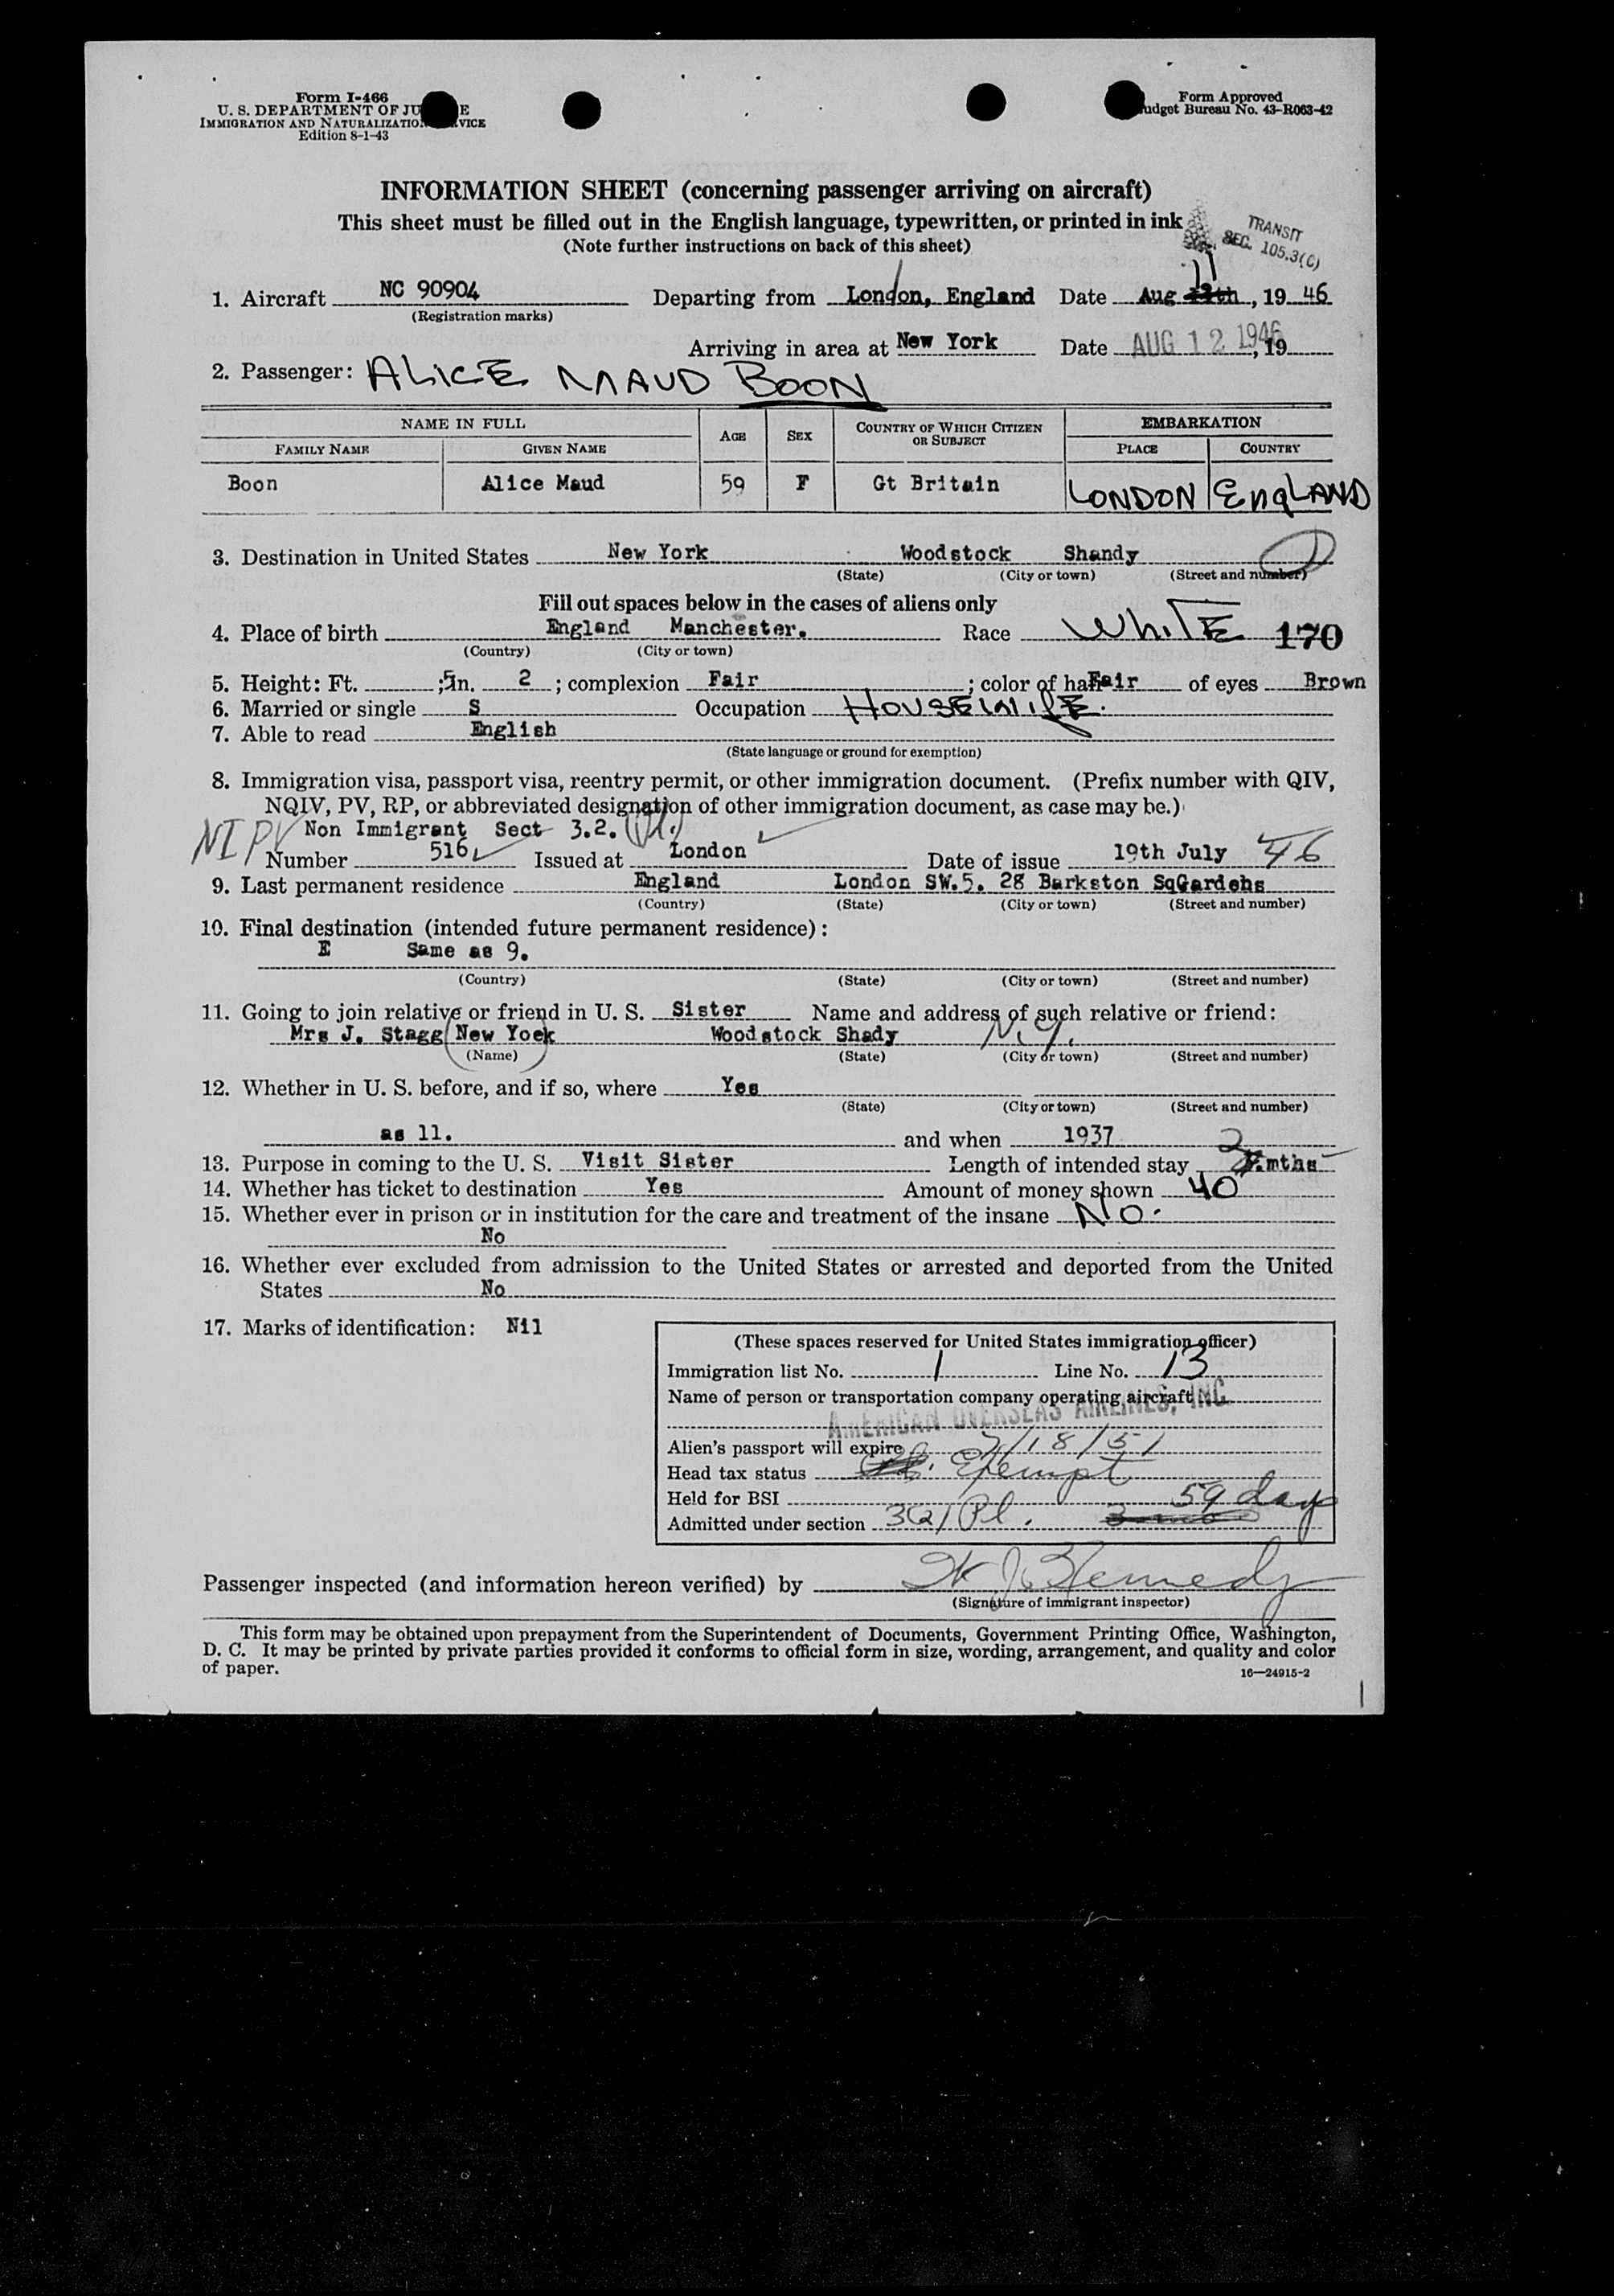 Form I-466
U. S. DEPARTMENT OF JU E
IMMIGRATION AND NATURALIZATIO VICE
Edition 8-1-43
Form Approved
udget Bureau No. 43-R063-42
INFORMATION SHEET (concerning passenger arriving on aircraft)
This sheet must be filled out in the English language, typewritten, or printed in ink
(Note further instructions on back of this sheet)
TRANSIT
SEC. 105.3(C)
11
1. Aircraft NC 90904 Departing from London, England Date Aug 12th, 19 46
(Registration marks)
Arriving in area at New York Date AUG 12 1946, 19
2. Passenger: ALICE MAUD BOON
NAME IN FULL AGE SEX COUNTRY OF WHICH CITIZEN OR SUBJECT EMBARKATION
FAMILY NAME GIVEN NAME PLACE COUNTRY
Boon Alice Maud 59 F Gt Britain LONDON ENGLAND
3. Destination in United States New York Woodstock Shandy
(State) (City or town) (Street and number)
Fill out spaces below in the cases of aliens only
4. Place of birth England Manchester. Race WHITE 170
(Country) (City or town)
5. Height: Ft. 5; in. 2; complexion Fair; color of hair Fair of eyes Brown
6. Married or single S Occupation HOUSEWIFE.
7. Able to read English
(State language or ground for exemption)
8. Immigration visa, passport visa, reentry permit, or other immigration document. (Prefix number with QIV,
NQIV, PV, RP, or abbreviated designation of other immigration document, as case may be.)
NIPV Non Immigrant Sect 3.2.
Number 516 Issued at London Date of issue 19th July 46
9. Last permanent residence England London SW.5. 28 Barkston SqGardens
(Country) (State) (City or town) (Street and number)
10. Final destination (intended future permanent residence):
E Same as 9.
(Country) (State) (City or town) (Street and number)
11. Going to join relative or friend in U. S. Sister Name and address of such relative or friend:
Mrs J. Stagg (New Yoek) Woodstock Shady N.Y.
(Name) (State) (City or town) (Street and number)
12. Whether in U. S. before, and if so, where Yes
(State) (City or town) (Street and number)
as 11. and when 1937
13. Purpose in coming to the U. S. Visit Sister Length of intended stay 2 mths
14. Whether has ticket to destination Yes Amount of money shown 40
15. Whether ever in prison or in institution for the care and treatment of the insane NO.
No
16. Whether ever excluded from admission to the United States or arrested and deported from the United
States No
17. Marks of identification: Nil
(These spaces reserved for United States immigration officer)
Immigration list No. 1 Line No. 13
Name of person or transportation company operating aircraft
AMERICAN OVERSEAS AIRLINES, INC.
Alien's passport will expire 7/18/51
Head tax status Exempt
Held for BSI 59 days
Admitted under section 3(2) Pl.
Passenger inspected (and information hereon verified) by W J Kennedy
(Signature of immigrant inspector)
This form may be obtained upon prepayment from the Superintendent of Documents, Government Printing Office, Washington,
D. C. It may be printed by private parties provided it conforms to official form in size, wording, arrangement, and quality and color
of paper.
16—24915-2